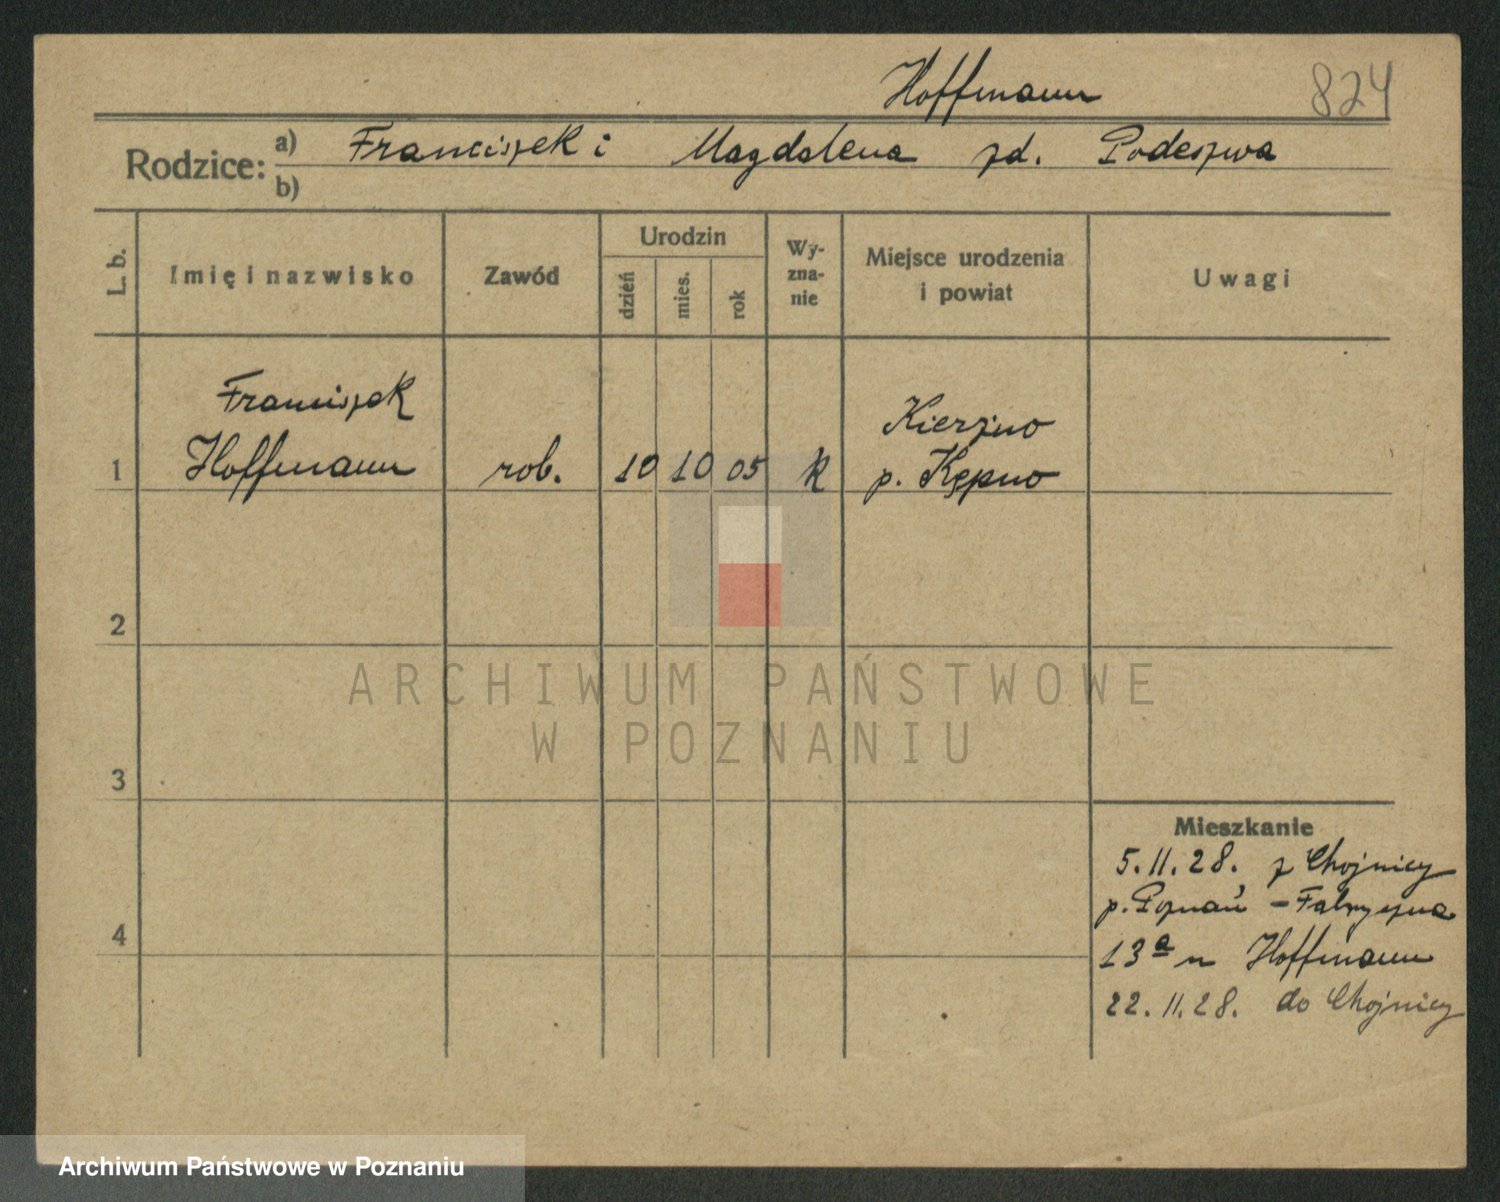 Hoffmann 824
Rodzice: a) Franciszek i Magdalena zd. Podeszwa
b)
L. b. Imię i nazwisko Zawód Urodzin dzień mies. rok Wyznanie Miejsce urodzenia i powiat Uwagi
Franciszek Kierzno
1 Hoffmann rob. 10 10 05 k p. Kępno
2
ARCHIWUM PAŃSTWOWE
W POZNANIU
3
Mieszkanie
5.11.28. z Chojnicy
p. Poznań - Fabryczna
4
13a u Hoffmann
22.11.28. do Chojnicy
Archiwum Państwowe w Poznaniu